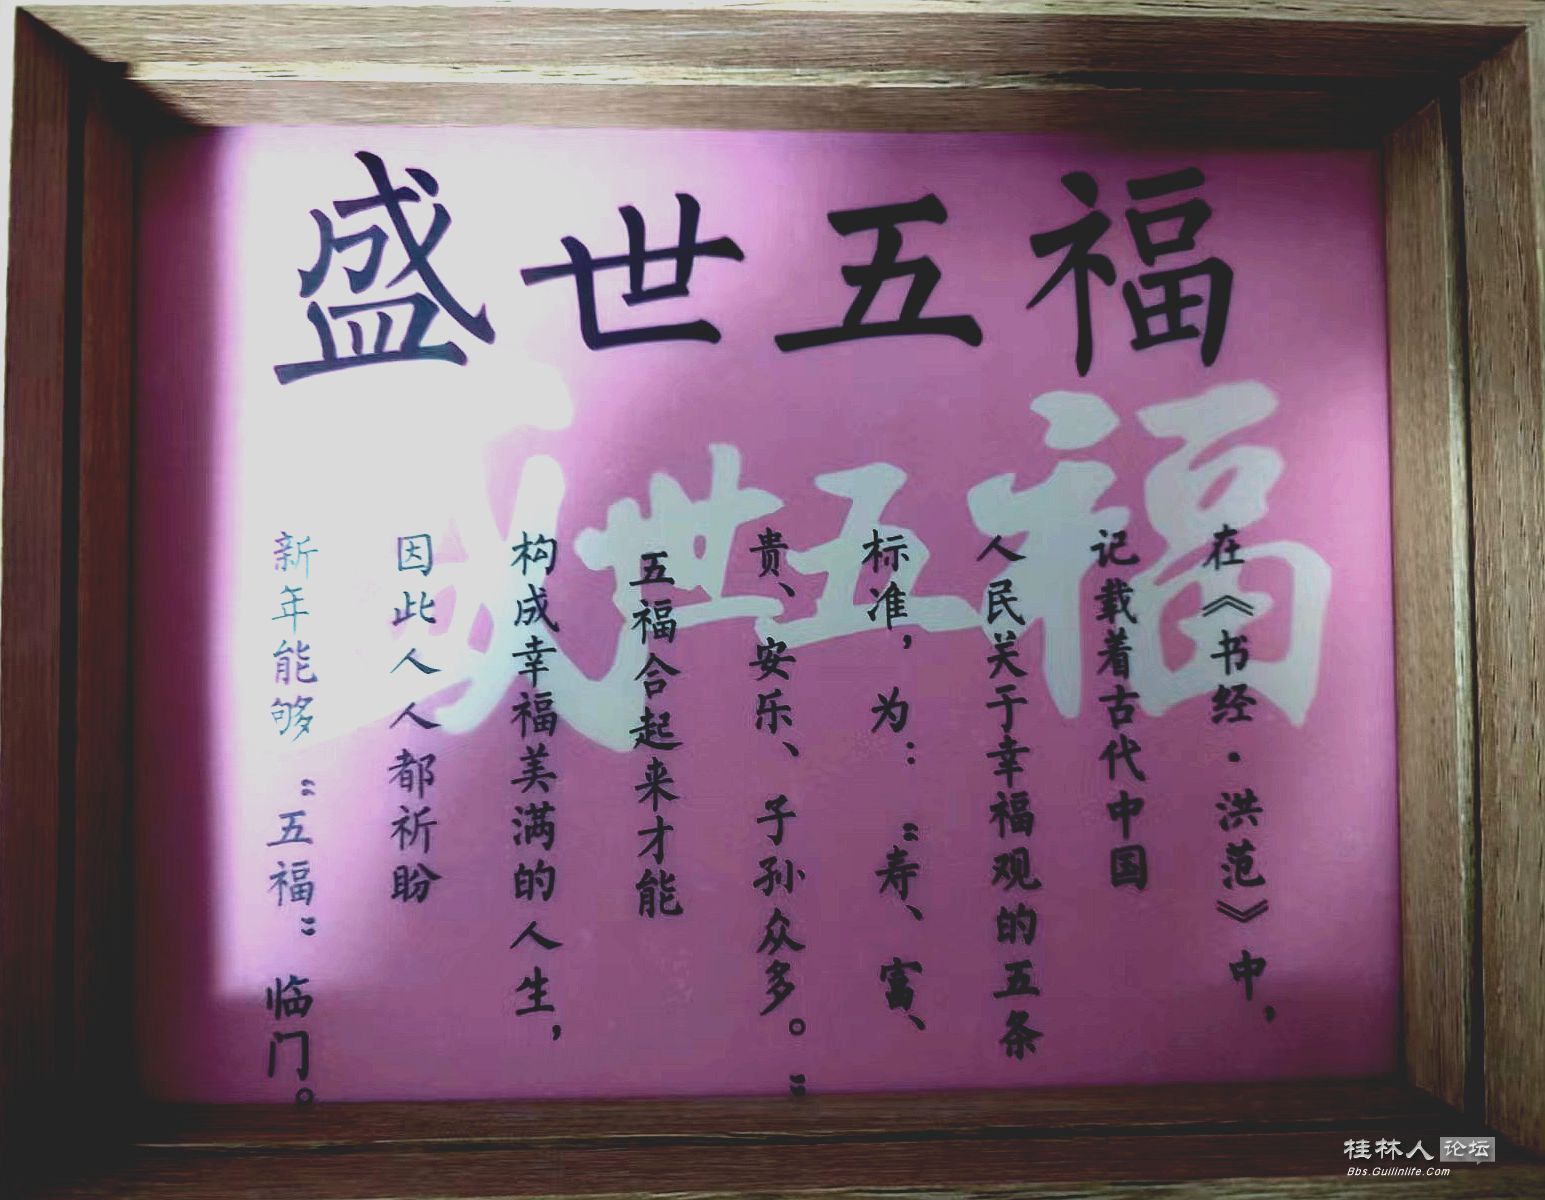 盛世五福
盛世五福
在《书经·洪范》中，
记载着古代中国
人民关于幸福观的五条
标准，为：“寿、富、
贵、安乐、子孙众多。”
五福合起来才能
构成幸福美满的人生，
因此人人都祈盼
新年能够“五福”临门。
桂林人论坛
Bbs.Guilinlife.Com